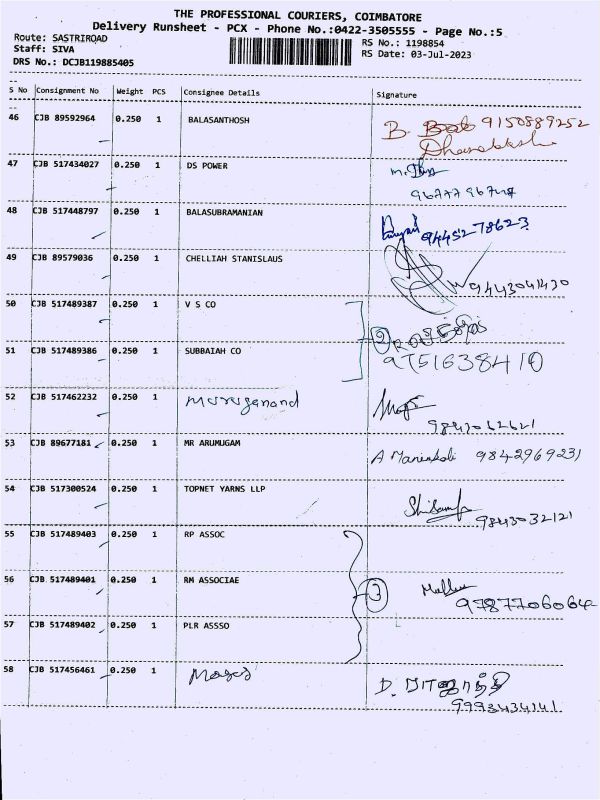 THE PROFESSIONAL COURIERS, COIMBATORE
Delivery Runsheet - PCX - Phone No.:0422-3505555 - Page No.:5
Route: SASTRIROAD
RS No.: 1198854
Staff: SIVA
RS Date: 03-Jul-2023
DRS No.: DCJB119885405
S No Consignment No Weight PCS Consignee Details Signature
46 CJB 89592964 0.250 1 BALASANTHOSH
B. 9150889252
47 CJB 517434027 0.250 1 DS POWER
48 CJB 517448797 0.250 1 BALASUBRAMANIAN
9445278623
49 CJB 89579036 0.250 1 CHELLIAH STANISLAUS
9443041430
50 CJB 517489387 0.250 1 V S CO
2
51 CJB 517489386 0.250 1 SUBBAIAH CO
9751638410
52 CJB 517462232 0.250 1 Muruganand
9843062621
53 CJB 89677181 0.250 1 MR ARUMUGAM
A 9842969231
54 CJB 517300524 0.250 1 TOPNET YARNS LLP
9843032121
55 CJB 517489403 0.250 1 RP ASSOC
56 CJB 517489401 0.250 1 RM ASSOCIAE
3
9787706064
57 CJB 517489402 0.250 1 PLR ASSSO
58 CJB 517456461 0.250 1
D.
9993434141